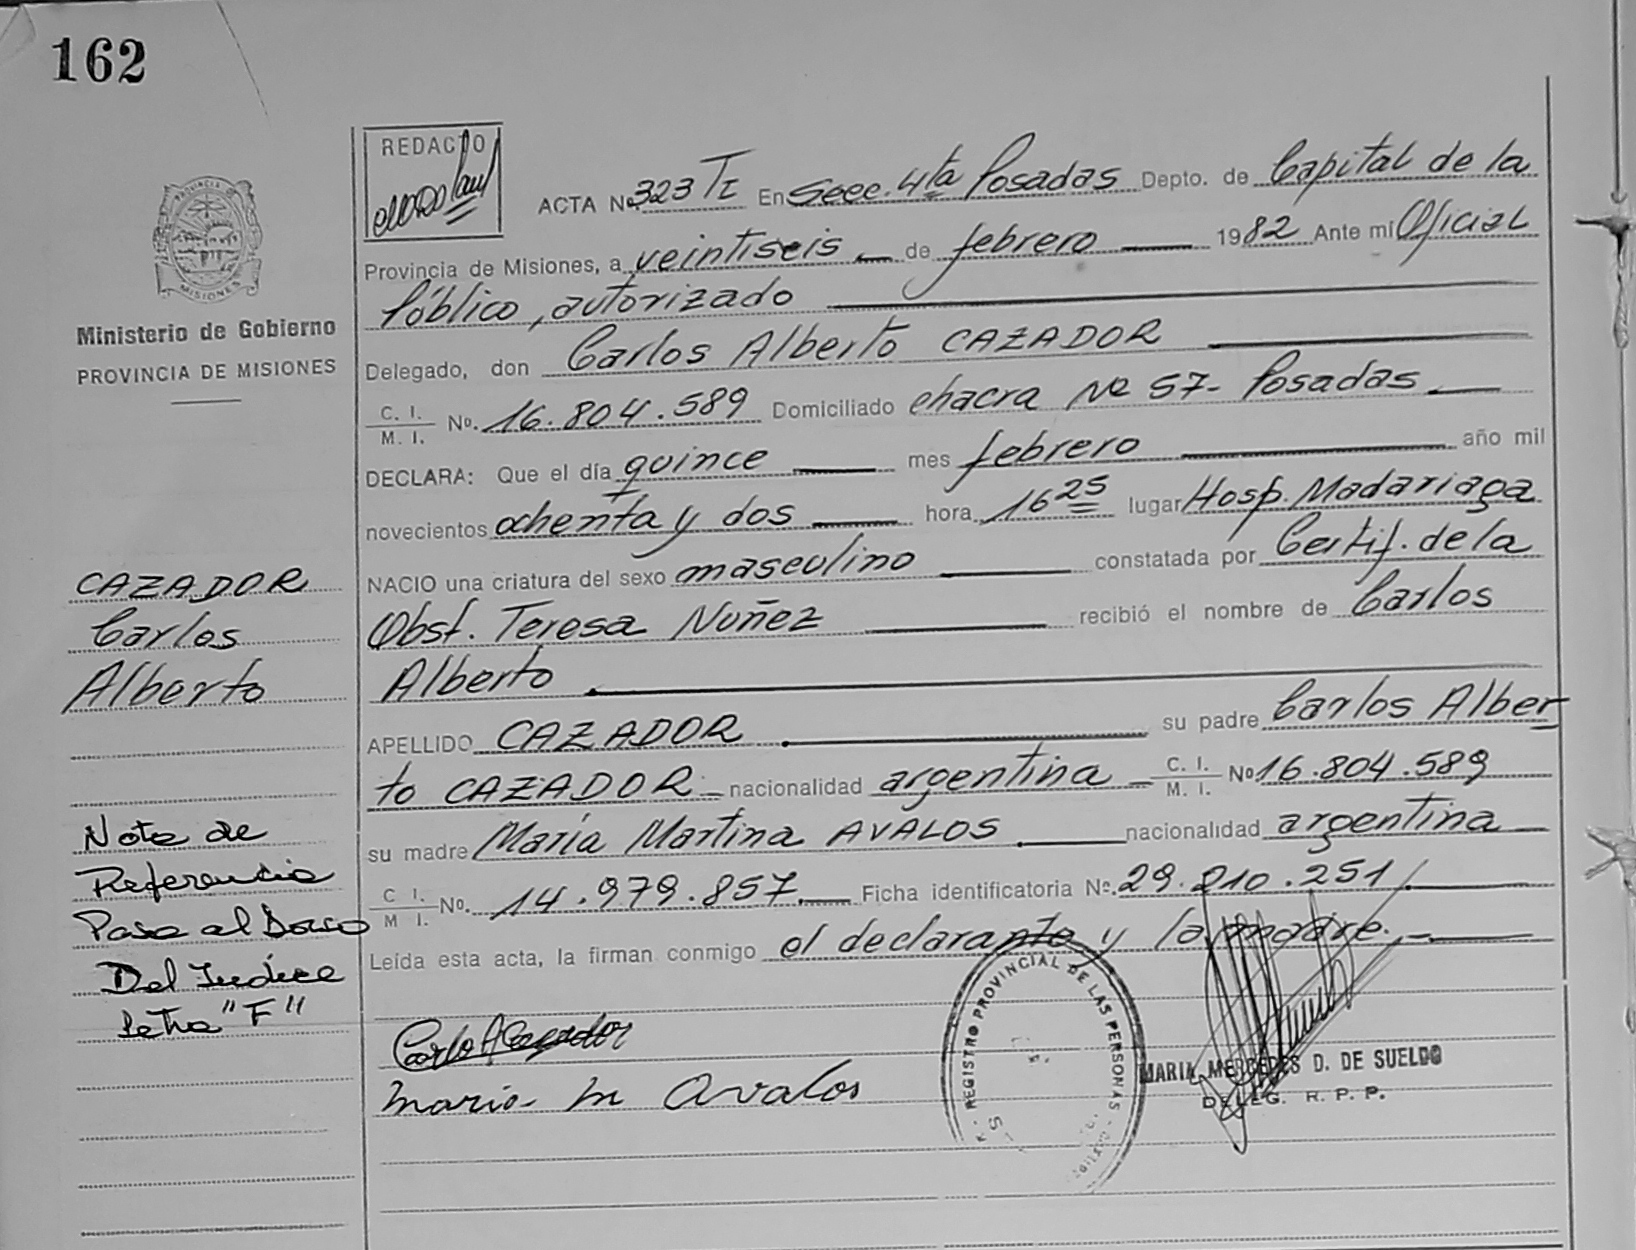 162
REDACTO
ACTA Nº 323 TI En Secc. 4ta Posadas Depto. de Capital de la
Provincia de Misiones, a veintiseis de febrero 1982 Ante mi Oficial
Público, autorizado
Delegado, don Carlos Alberto CAZADOR
C. I. / M. I. Nº. 16.804.589 Domiciliado chacra Nº 57- Posadas
DECLARA: Que el día quince mes febrero año mil
novecientos ochenta y dos hora 16 25 lugar Hosp. Madariaga
NACIO una criatura del sexo masculino constatada por Certif. de la
Obst. Teresa Nuñez recibió el nombre de Carlos
Alberto
APELLIDO CAZADOR su padre Carlos Alber
to CAZADOR nacionalidad argentina C. I. / M. I. Nº 16.804.589
su madre María Martina AVALOS nacionalidad argentina
C I. / M I. No. 14.979.857 Ficha identificatoria Nº. 29.210.251
Leída esta acta, la firman conmigo el declarante y la madre.
PROVINCIA DE
MISIONES
Ministerio de Gobierno
PROVINCIA DE MISIONES
CAZADOR
Carlos
Alberto
Nota de
Referencia
Pasa al Dorso
Del Indice
letra "F"
Maria M Avalos
REGISTRO PROVINCIAL DE LAS PERSONAS
MARIA MERCEDES D. DE SUELDO
DELEG. R. P. P.